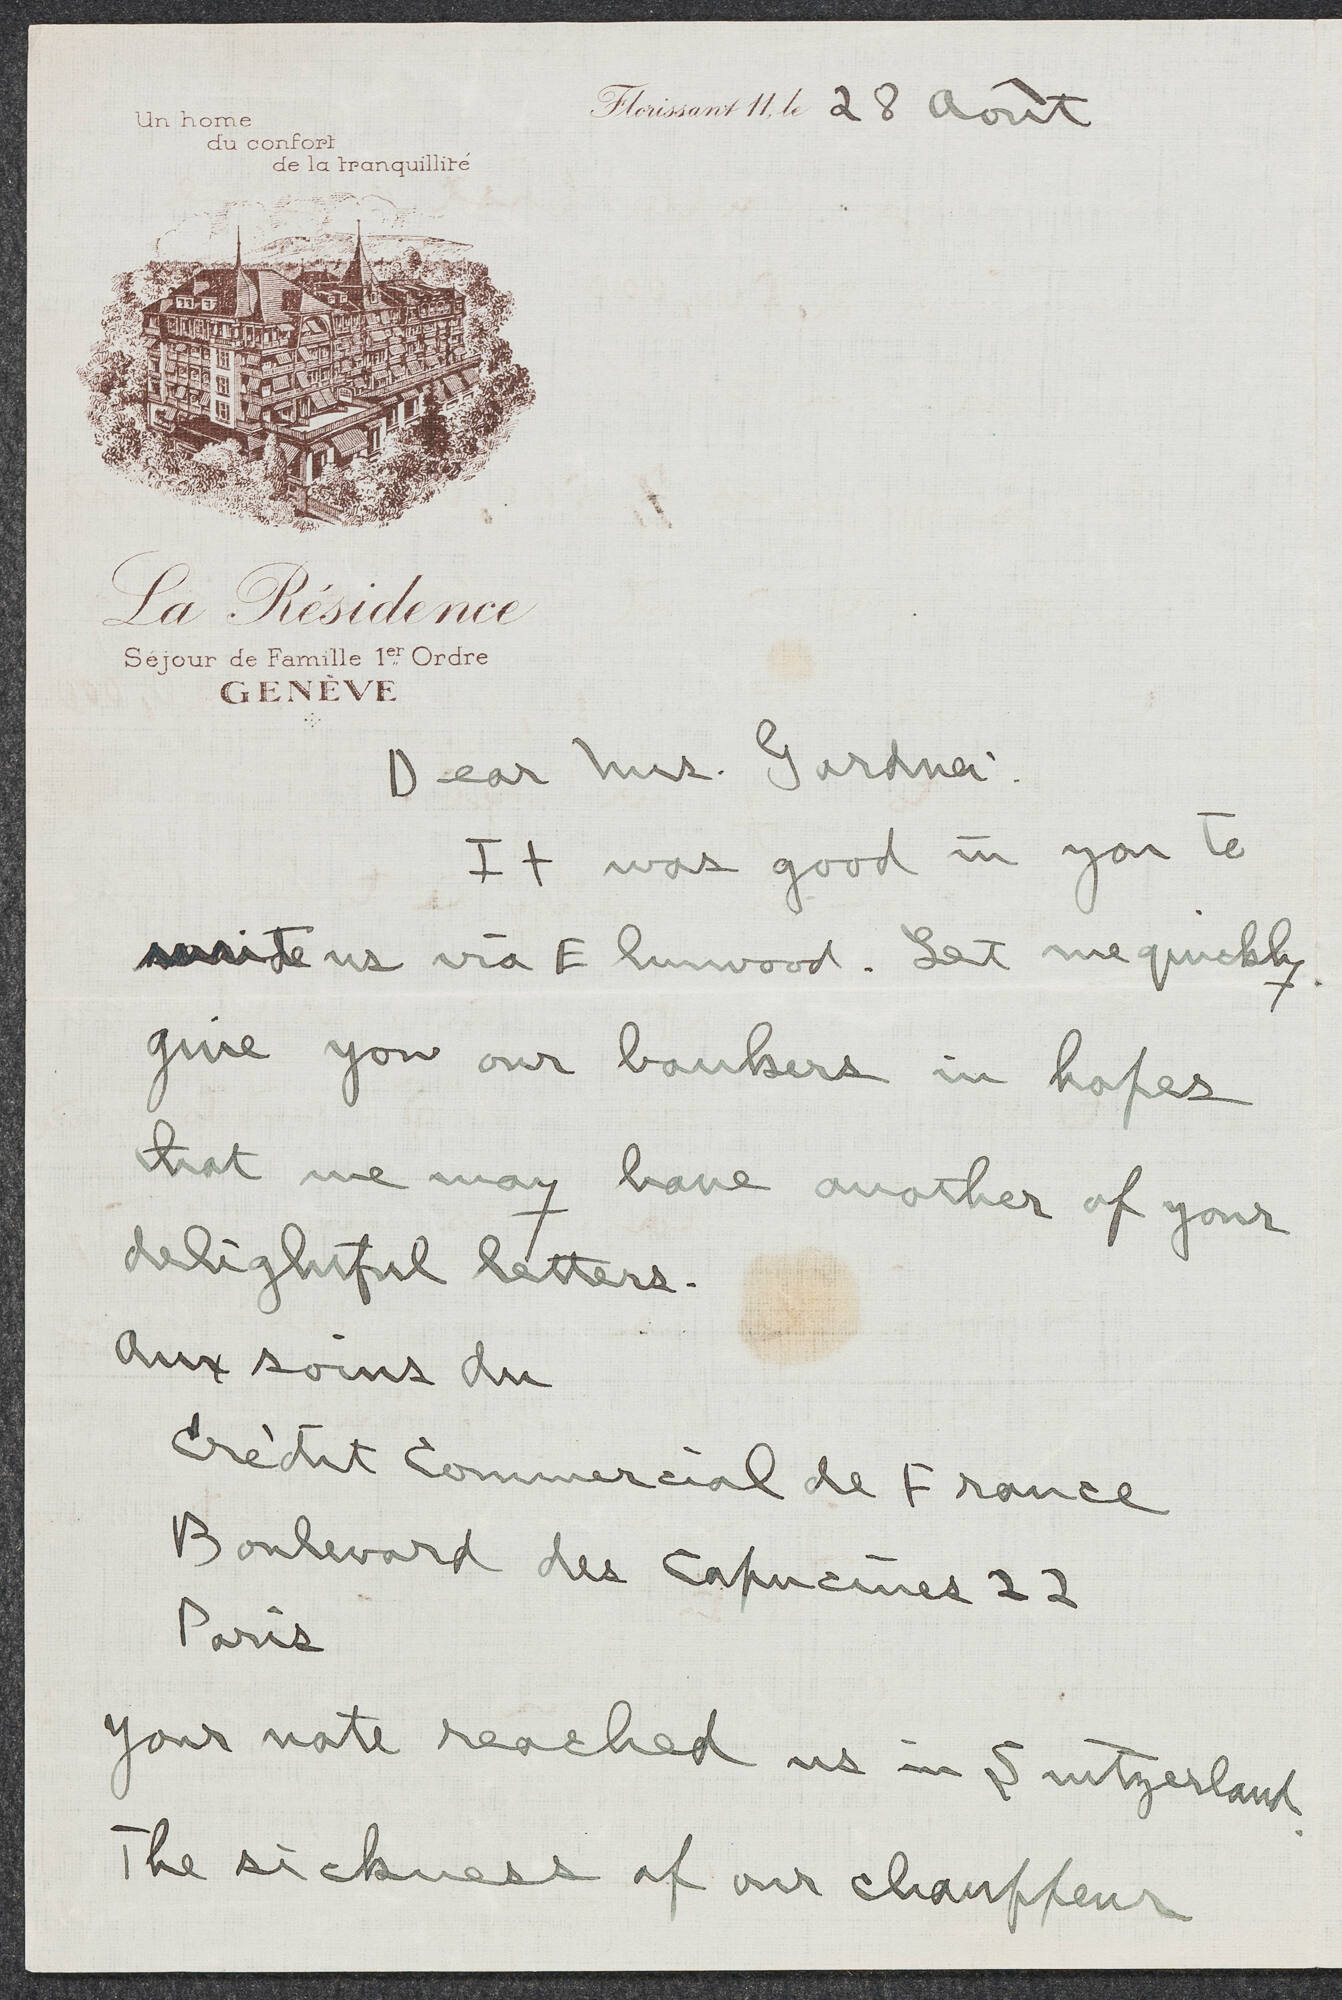 Un home
du confort
de la tranquillité
Florissant 11, le 28 Août
La Résidence
Séjour de Famille 1er Ordre
GENÈVE
Dear Mrs. Gardner.
It was good in you to
write us via Elmwood. Let me quickly
give you our bankers in hopes
that we may have another of your
delightful letters.
Aux soins du
Crédit Commercial de France
Boulevard des Capucines 22
Paris
Your note reached us in Switzerland.
The sickness of our chauffeur